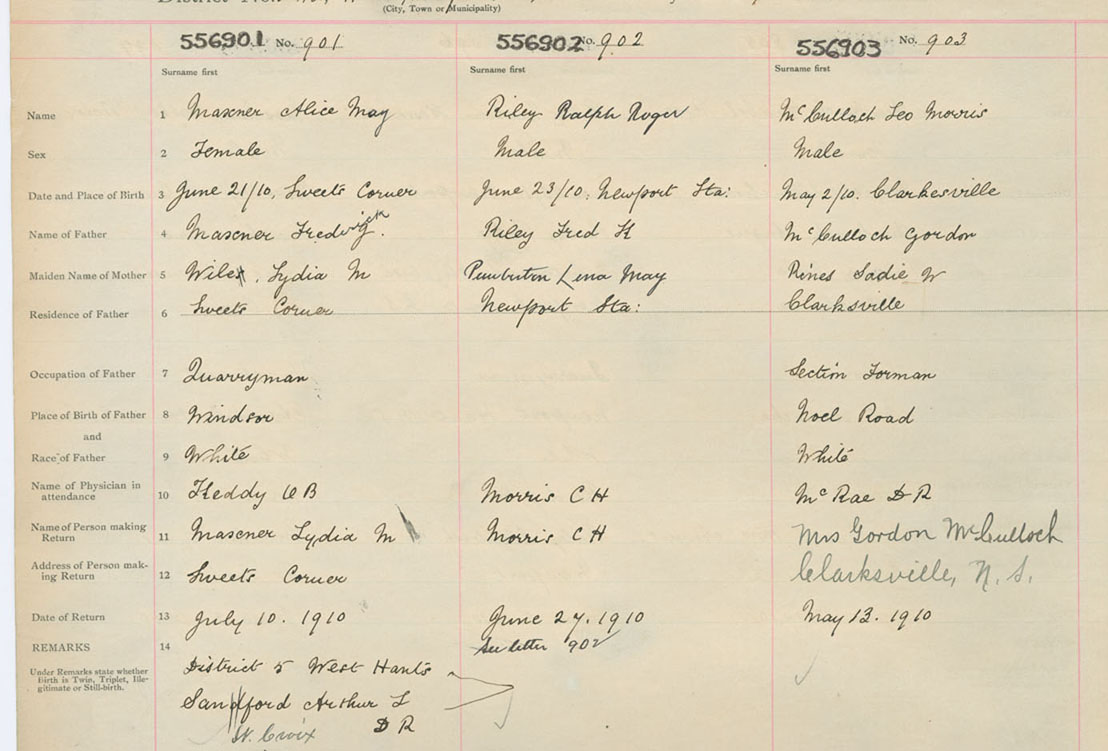 (City, Town or Municipality)
556901 No. 901
556902 No. 902
556903 No. 903
Surname first Surname first Surname first
Name 1 Mascner Alice May Riley Ralph Roger McCulloch Leo Morris
Sex 2 Female Male Male
Date and Place of Birth 3 June 21/10, Sweets Corner June 23/10. Newport Sta: May 2/10. Clarkesville
Name of Father 4 Mascner Fredrick. Riley Fred H McCulloch Gordon
Maiden Name of Mother 5 Wile, Lydia M Pemberton Lena May Rines Sadie W
Residence of Father 6 Sweets Corner Newport Sta: Clarksville
Occupation of Father 7 Quarryman Section Forman
Place of Birth of Father 8 Windsor Noel Road
and
Race of Father 9 White White
Name of Physician in
attendance 10 Keddy O B Morris C H McRae D R
Name of Person making
Return 11 Mascner Lydia M Morris C H Mrs Gordon McCulloch
Address of Person mak-
ing Return 12 Sweets Corner Clarksville, N. S.
Date of Return 13 July 10. 1910 June 27. 1910 May 13. 1910
REMARKS 14 See letter 902
Under Remarks state whether
Birth is Twin, Triplet, Ille-
gitimate or Still-birth.
District 5 West Hants
Sandford Arthur L
St. Croix D R